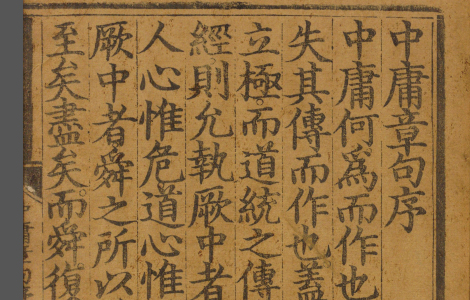 中庸章句序
中庸何爲而作也
失其傳而作也蓋
立極而道統之傳
經則允執厥中者
人心惟危道心惟
厥中者舜之所以
至矣盡矣而舜復